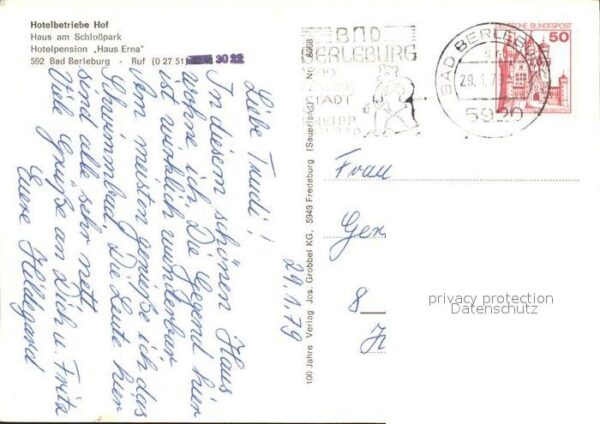 Hotelbetriebe Hof
Haus am Schloßpark
Hotelpension „Haus Erna"
592 Bad Berleburg - Ruf (0 27 51) 30 22
29.1.79
Liebe Trudi!
In diesem schönen Haus
wohne ich. Die Gegend hier
ist wirklich wunderbar
Am meisten genieße ich das
Schwimmbad. Die Leute hier
sind alle sehr nett.
Viele Grüße an Dich u. Fritz
Euere Hildegard
100 Jahre Verlag Jos. Grobbel KG, 5949 Fredeburg (Sauerland)
BAD
BERLEBURG
STADT
BAD BERLEBURG
28.1.79
5920
DEUTSCHE BUNDESPOST
50
Frau
Ger
8
privacy protection
Datenschutz